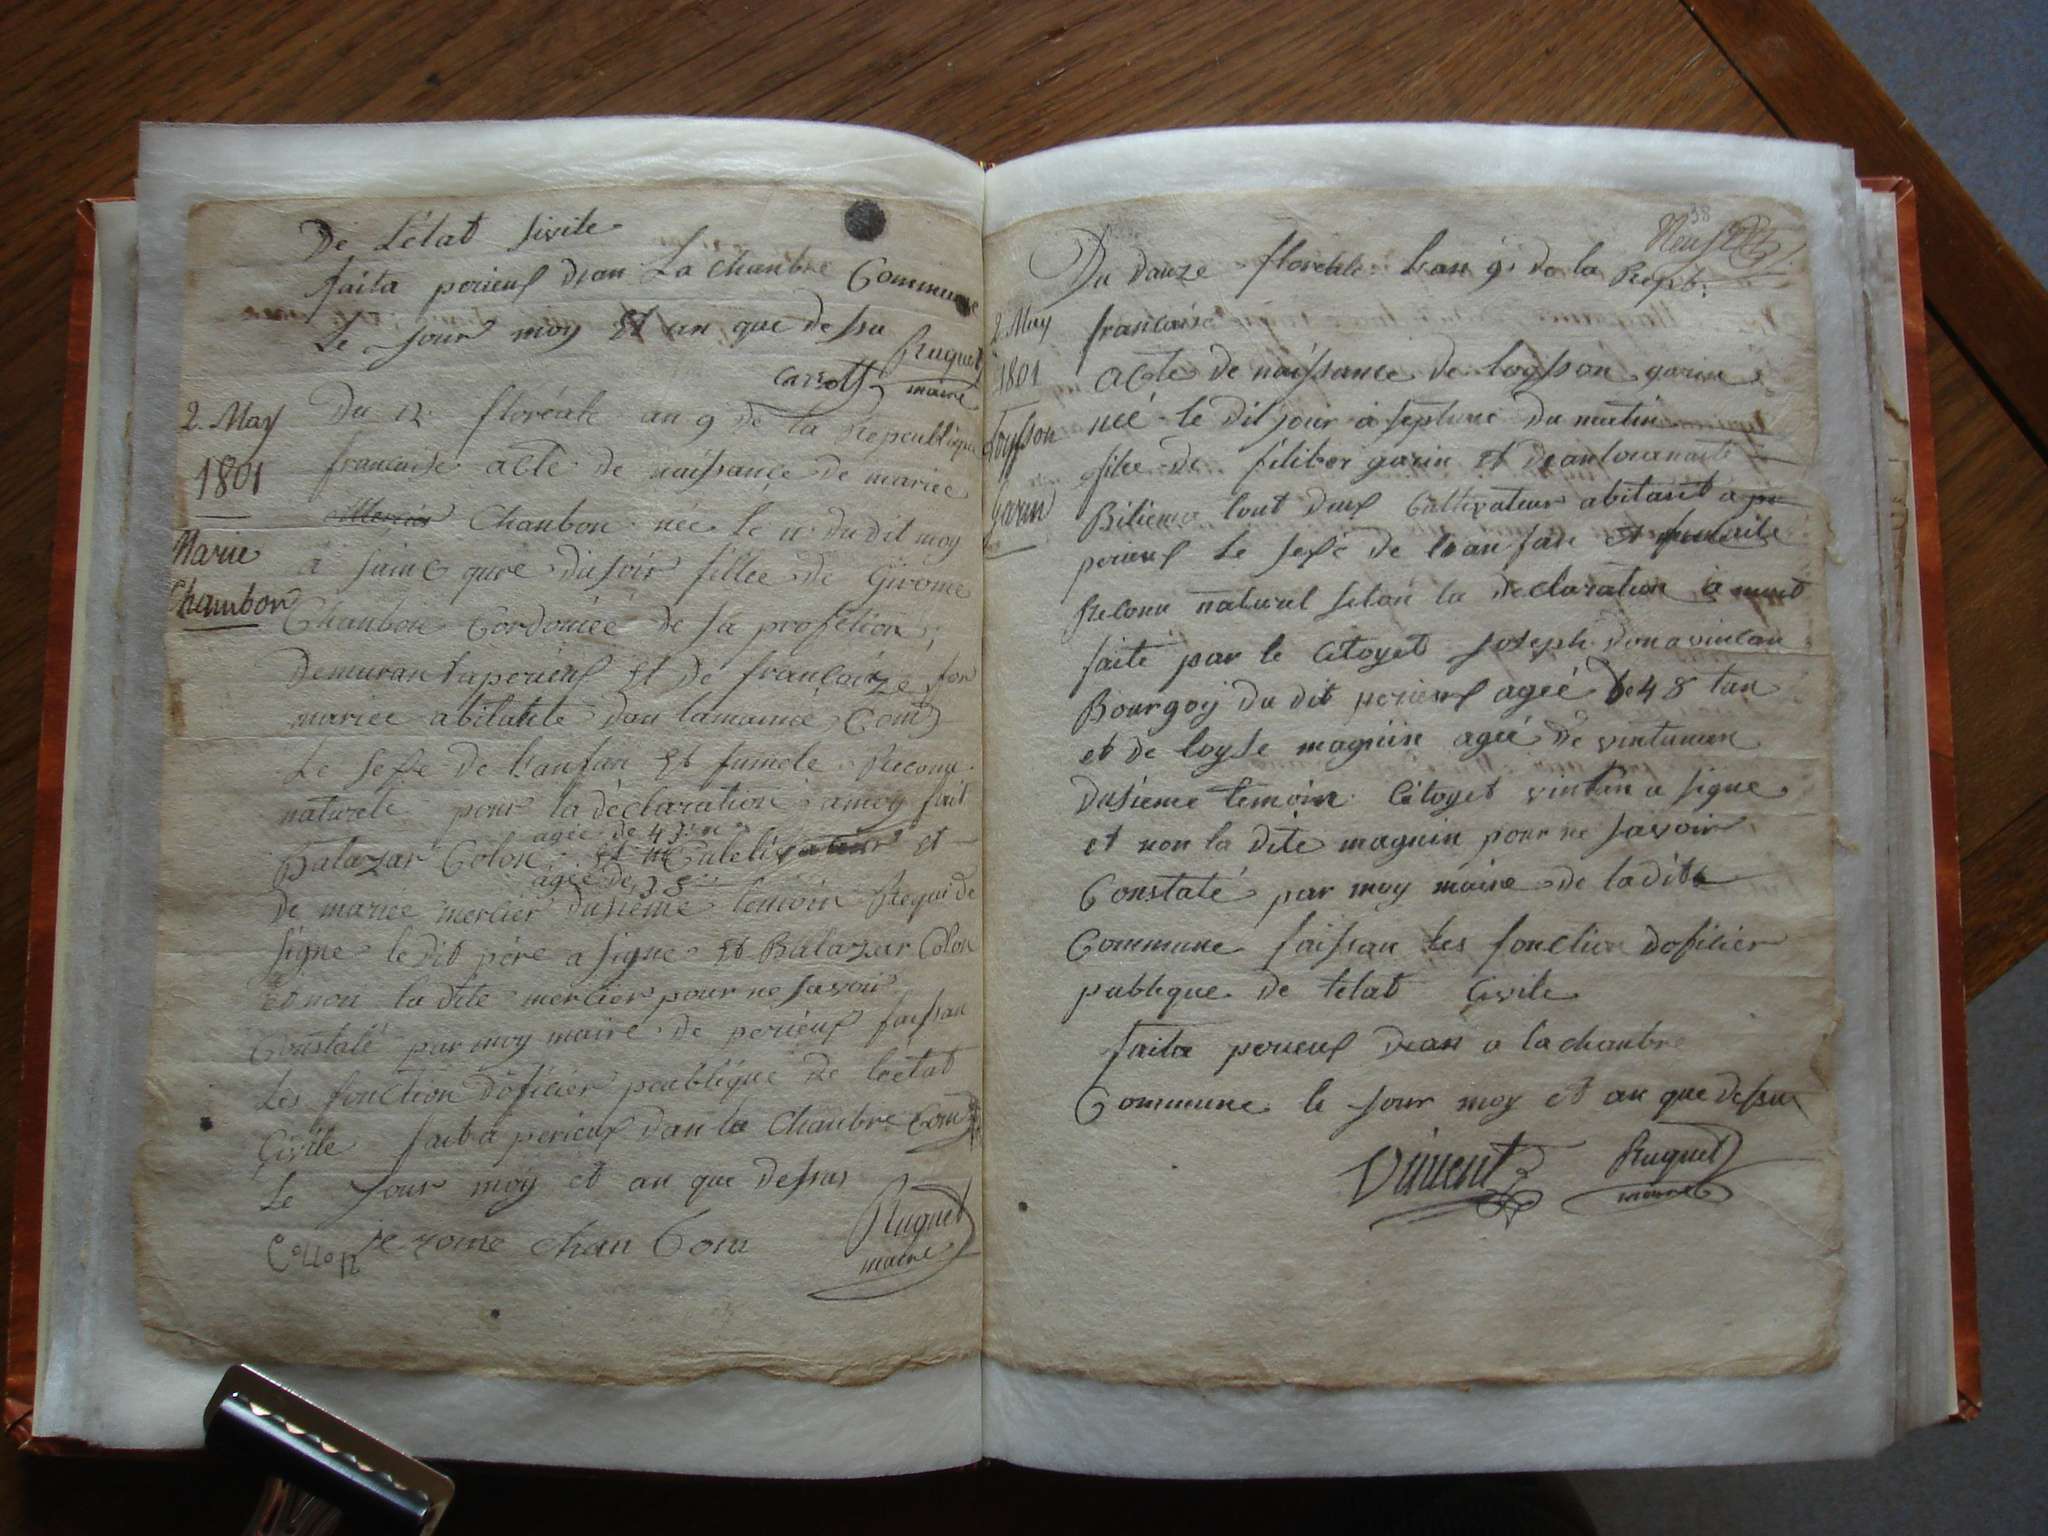 De L'état sivile
faita perieux dean La chanbre Commune
Le jour moy Et an que dessu
Ruquet
maire
2. May
1801
Marie
Chambon
Du 12 floréale an 9 de la Republique
francaise acte de naissance de mariee
Chanbon née le 11 du dit moy
a du soir fillee de Girome
Chanbon Cordoniée de sa profétion
demurant aperieux Et de francoize son
mariee abitante dan lamaime Com
Le sexse de l'anfan Et fumele Reconu
naturele pour la déclaration amoy fait
agée de 43
Balazar Colon Et
agée de 38
De mariee mercier dusieme temoin Requi de
signe le dit pére a signe Et Balazar Colon
et non la dite mercier pour ne savoir
Constaté par moy maire de perieux faissan
Les fonction d'oficier peublique de l'etat
Civile fait a perieux dan la Chanbre Com
Le Jour moy et an que dessus
Collon je rome chan bom
Ruquet
maire
38
2. May
1801
Loysson
Garin
Du douze floréale l'an 9 de la Repb.
francaise
Acte de naissance de loysson garin
née le dit jour a septure du matin
filse de filiber garin et
tout deux Cultivateur abitant a
perieux Le sexe de l'anfan
Reconu naturel selon la declaration a
faite par le Citoyet Joseph
Bourgoy du dit perieux ageé de 48 tan
et de loyse magnin ageé de vintunan
dusieme temoin Citoyet vintan a signe
et non la dite magnin pour ne savoir
Constaté par moy maire de ladite
Commune faissan les fonction doficier
publique de l'etat Civile
faita perieux dean a la chanbre
Commune le jour moy et an que dessus
Vincent Ruquet
maire